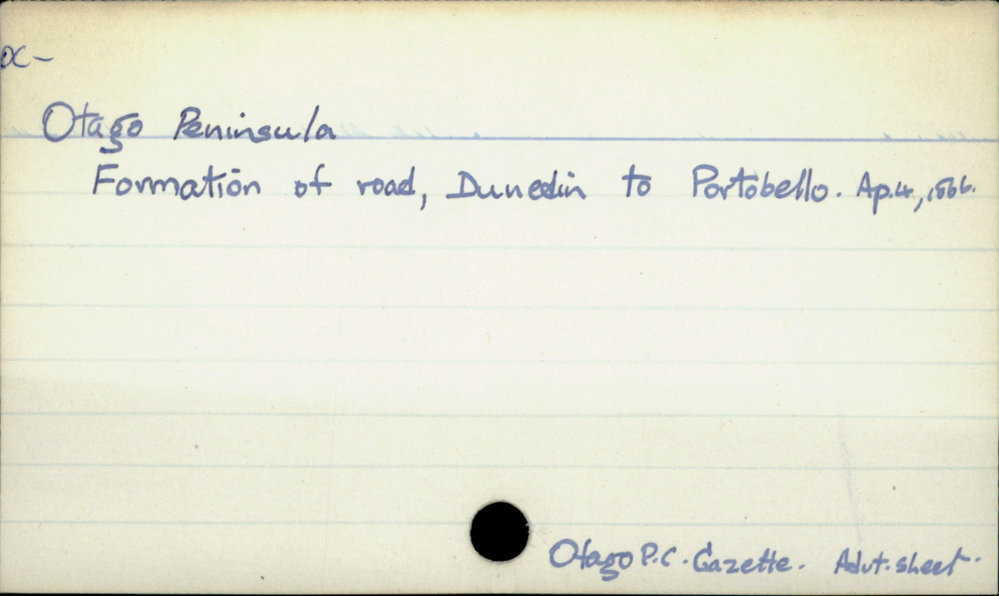 Otago Peninsula
Formation of road, Dunedin to Portobello. Ap.4, 1866.
Otago P.C. Gazette. Advt. sheet.